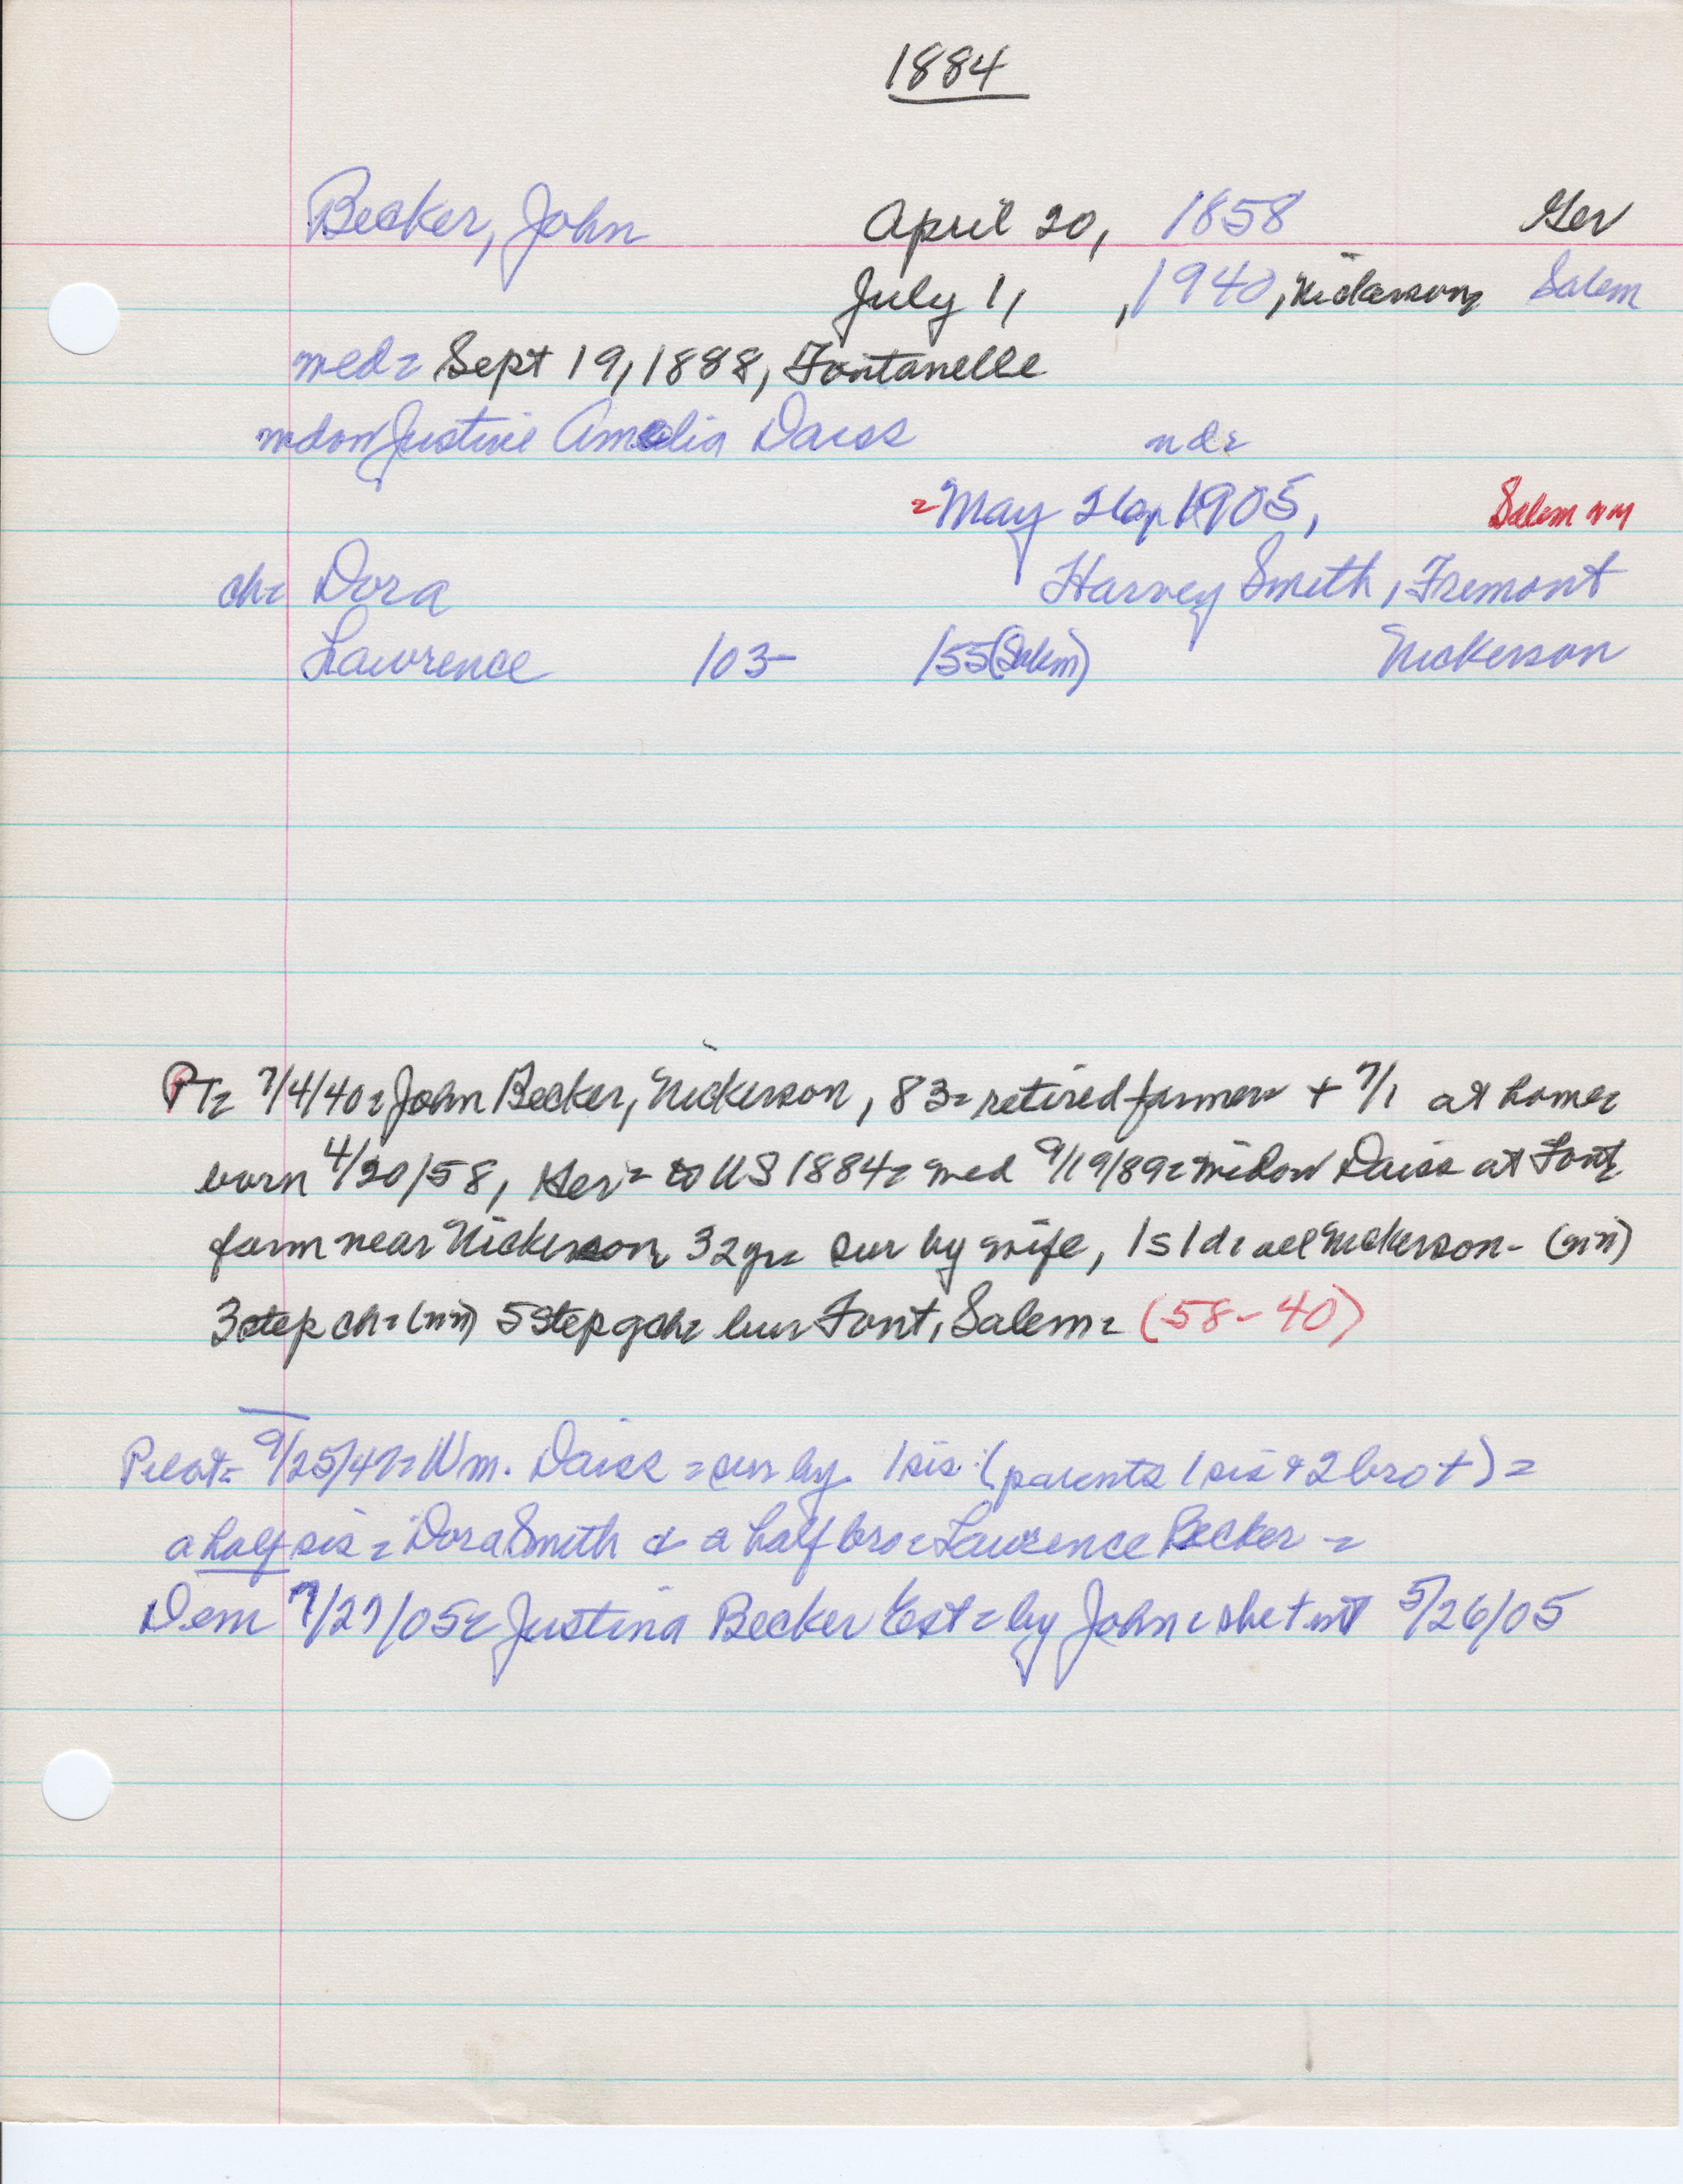 1884
Becker, John April 20, 1858 Ger
July 1, , 1940, Nickerson, Salem
med= Sept 19, 1888, Fontanelle
wdow Justine Amelia Daiss nd=
=May 26, 1905, Salem nm
ch= Dora Harvey Smith, Fremont
Lawrence 103- /55(Salem) Nickerson
PT= 7/4/40= John Becker, Nickerson, 83= retired farmer + 7/1 at home=
born 4/20/58, Ger= to US 1884= med 9/19/89= widow Daiss at Font=
farm near Nickerson 32yr= sur by wife, 1s 1d= all Nickerson- (nn)
3step ch= (nn) 5stepgch= bur Font, Salem= (58-40)
9/25/47= Wm. Daiss = sur by 1sis (parents 1sis & 2bro+) =
a half sis = Dora Smith & a half bro= Lawrence Becker =
Dem 7/27/05= Justina Becker Est= by John= she+ 5/26/05